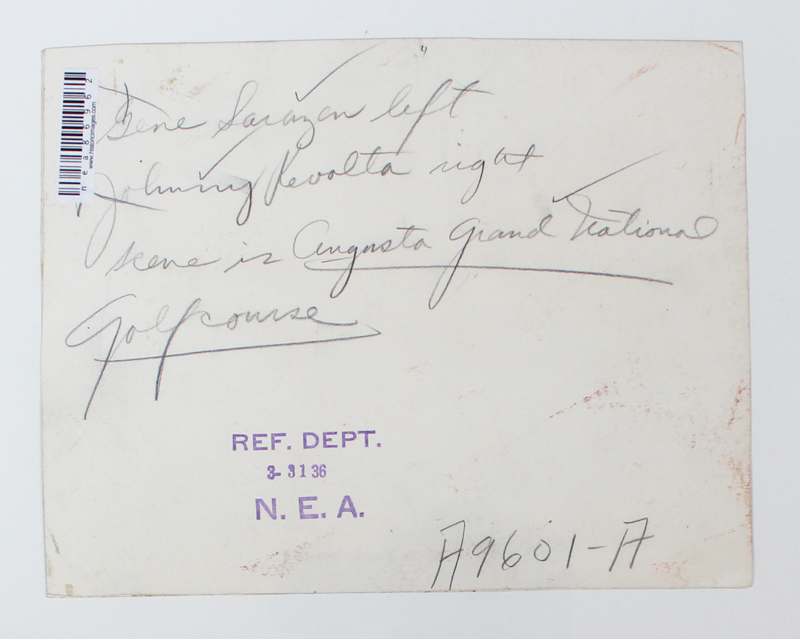 Gene Sarazen left
Johnny Revolta right
scene is Augusta Grand National
Golf course
REF. DEPT.
3-3136
N. E. A.
A9601-A
nea86962
www.historicimages.com